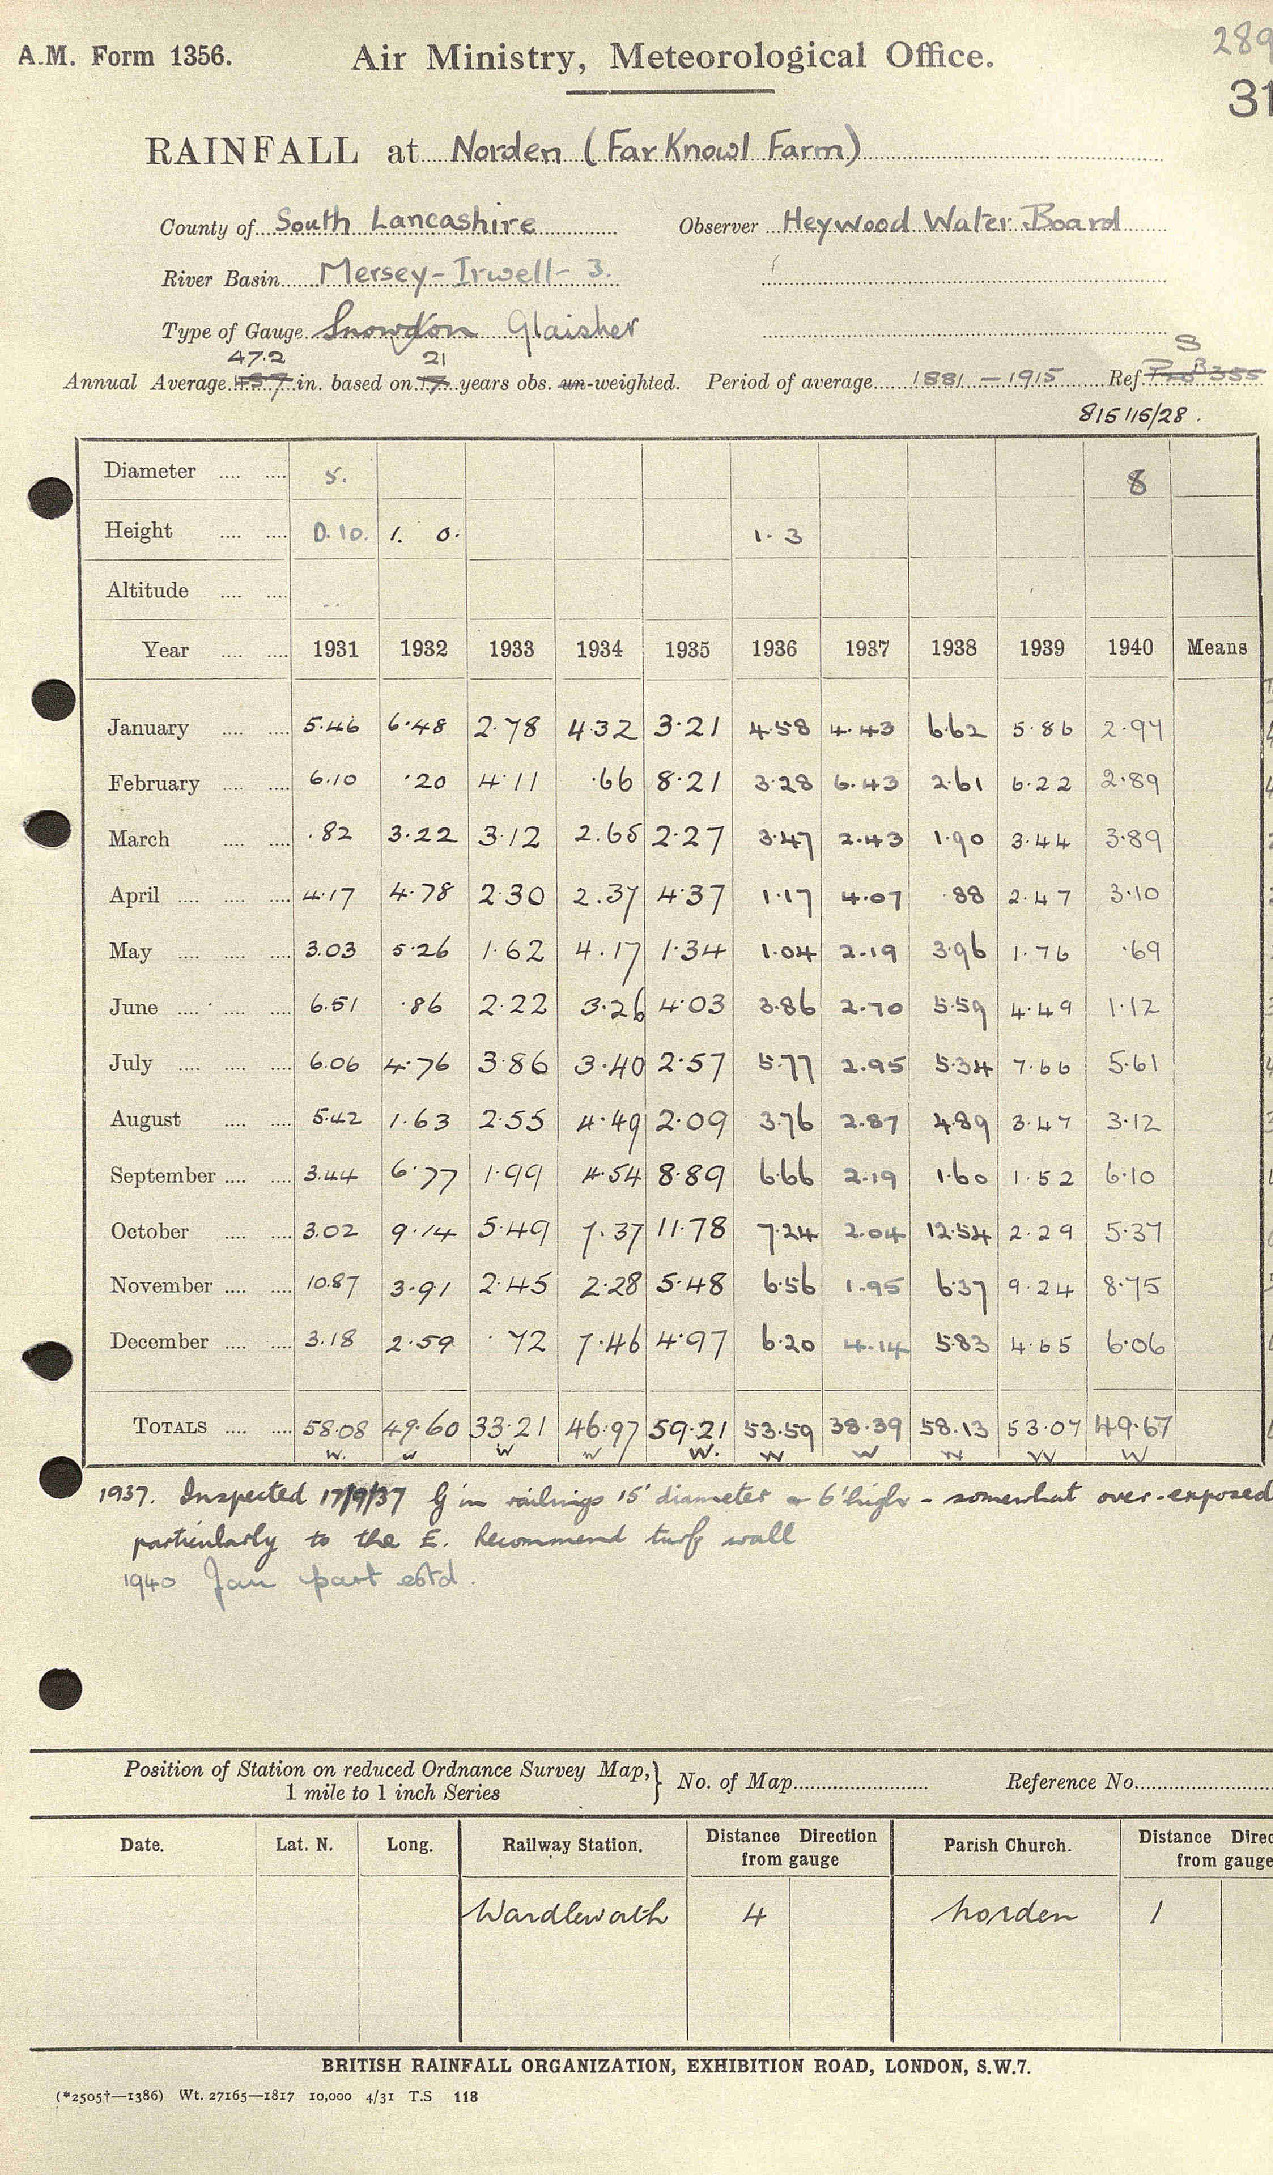 289
A.M. Form 1356. Air Ministry, Meteorological Office.
31
RAINFALL at Norden (Far Knowl Farm)
County of South Lancashire Observer Heywood Water Board
River Basin Mersey-Irwell-3.
Type of Gauge Snowdon Glaisher
47.2 21 S
Annual Average in. based on 17 years obs. un-weighted. Period of average 1881 - 1915 Ref. B355
815115/28.
Diameter 5. 8
Height 0.10. 1. 0. 1. 3
Altitude
Year 1931 1932 1933 1934 1935 1936 1937 1938 1939 1940 Means
January 5.46 6.48 2.78 4.32 3.21 4.58 4.43 6.62 5.86 2.97
February 6.10 .20 4.11 .66 8.21 3.28 6.43 2.61 6.22 2.89
March .82 3.22 3.12 2.65 2.27 3.47 2.43 1.90 3.44 3.89
April 4.17 4.78 2.30 2.37 4.37 1.17 4.07 .88 2.47 3.10
May 3.03 5.26 1.62 4.17 1.34 1.04 2.19 3.96 1.76 .69
June 6.51 .86 2.22 3.26 4.03 3.86 2.70 5.59 4.49 1.12
July 6.06 4.76 3.86 3.40 2.57 5.77 2.95 5.34 7.66 5.61
August 5.42 1.63 2.55 4.49 2.09 3.76 2.87 4.89 3.47 3.12
September 3.44 6.77 1.99 4.54 8.89 6.66 2.19 1.60 1.52 6.10
October 3.02 9.14 5.49 7.37 11.78 7.24 2.04 12.54 2.29 5.37
November 10.87 3.91 2.45 2.28 5.48 6.56 1.95 6.37 9.24 8.75
December 3.18 2.59 .72 7.46 4.97 6.20 4.14 5.83 4.65 6.06
TOTALS 58.08 49.60 33.21 46.97 59.21 53.59 38.39 58.13 53.07 49.67
W. W W W W. W W W W W
1937. Inspected 17/9/37 G in railings 15' diameter 6' high - somewhat over-exposed
particularly to the E. Recommend turf wall
1940 Jan part estd.
Position of Station on reduced Ordnance Survey Map, 1 mile to 1 inch Series } No. of Map Reference No.
Date. Lat. N. Long. Railway Station. Distance Direction from gauge Parish Church. Distance Direc from gauge
Wardleworth 4 Norden 1
BRITISH RAINFALL ORGANIZATION, EXHIBITION ROAD, LONDON, S.W.7.
(*2505†—1386) Wt. 27165—1817 10,000 4/31 T.S 118